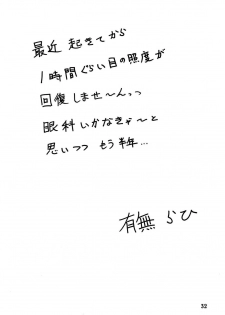 最近 起きてから
1時間ぐらい目の照度が
回復しませ〜んっっ
眼科いかなきゃ〜と
思いつつ もう半年…
有無 らひ
32